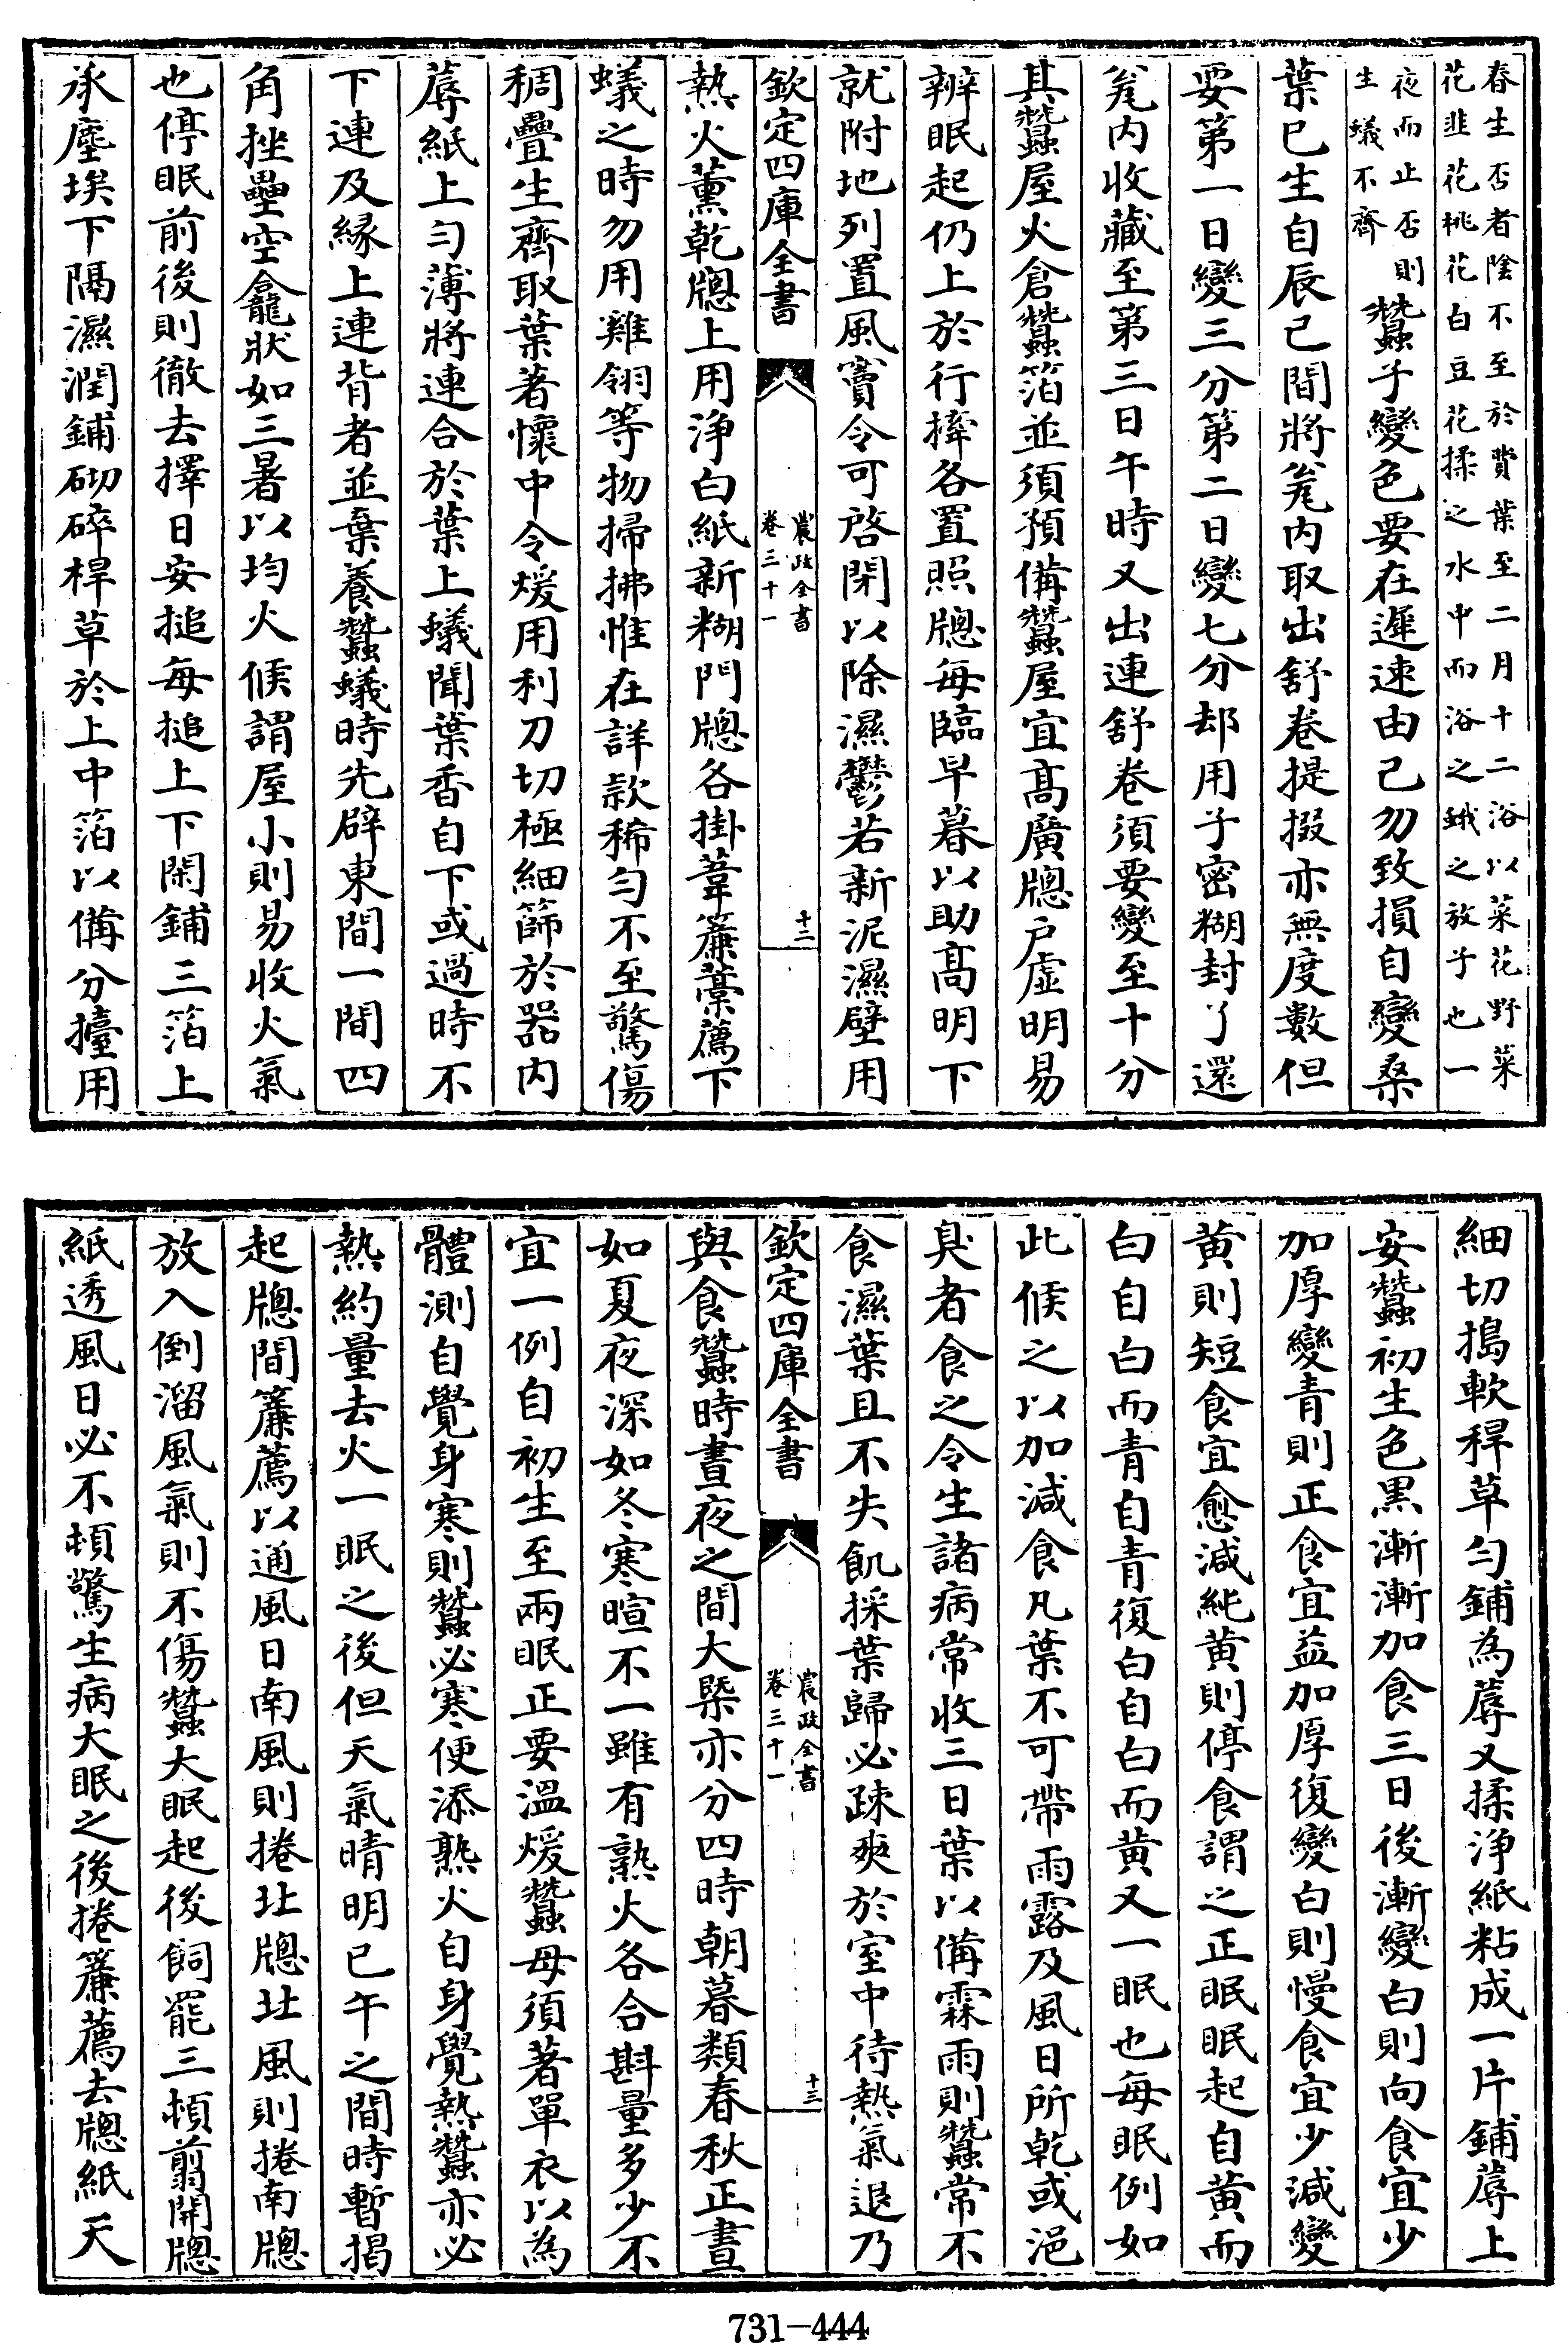 春生否者陰不至於費葉至二月十二浴以菜花野菜
花韭花桃花白豆花揉之水中而浴之蛾之放子也一
夜而止否則
生蟻不齊
蠶子變色要在遲速由己勿致損自變桑
葉已生自辰巳間將瓮内取出舒卷提掇亦無度數但
要第一日變三分第二日變七分却用子密糊封了還
瓮内收藏至第三日午時又出連舒卷須要變至十分
其蠶屋火倉蠶箔並須預備蠶屋宜高廣牕户虚明易
辨眠起仍上於行㮇各置照牕每臨早暮以助高明下
就附地列置風竇令可啓閉以除濕鬱若新泥濕壁用
欽定四庫全書
農政全書
卷三十一
十二
熱火薰乾牕上用浄白紙新糊門牕各掛葦簾藁薦下
蟻之時勿用雞翎等物掃拂惟在詳款稀匀不至驚傷
稠疊生齊取葉著懷中令煖用利刀切極細篩於器内
蓐紙上匀薄將連合於葉上蟻聞葉香自下或過時不
下連及緣上連背者並棄養蠶蟻時先辟東間一間四
角挫壘空龕狀如三暑以均火候謂屋小則易收火氣
也停眠前後則徹去擇日安搥每搥上下閑鋪三箔上
承塵埃下隔濕潤鋪砌碎稈草於上中箔以備分擡用
細切搗軟稈草匀鋪為蓐又揉浄紙粘成一片鋪蓐上
安蠶初生色黑漸漸加食三日後漸變白則向食宜少
加厚變青則正食宜益加厚復變白則慢食宜少減變
黄則短食宜愈減純黄則停食謂之正眠眠起自黄而
白自白而青自青復白自白而黄又一眠也每眠例如
此候之以加減食凡葉不可帶雨露及風日所乾或浥
臭者食之令生諸病常收三日葉以備霖雨則蠶常不
食濕葉且不失飢採葉歸必疎爽於室中待熱氣退乃
欽定四庫全書
農政全書
卷三十一
十三
與食蠶時晝夜之間大槩亦分四時朝暮類春秋正晝
如夏夜深如冬寒暄不一雖有熟火各合斟量多少不
宜一例自初生至兩眠正要溫煖蠶母須著單衣以為
體測自覺身寒則蠶必寒便添熟火自身覺熱蠶亦必
熱約量去火一眠之後但天氣晴明巳午之間時暫揭
起牕間簾薦以通風日南風則捲北牕北風則捲南牕
放入倒溜風氣則不傷蠶大眠起後飼罷三頓翦開牕
紙透風日必不頓驚生病大眠之後捲簾薦去牕紙天
731-444